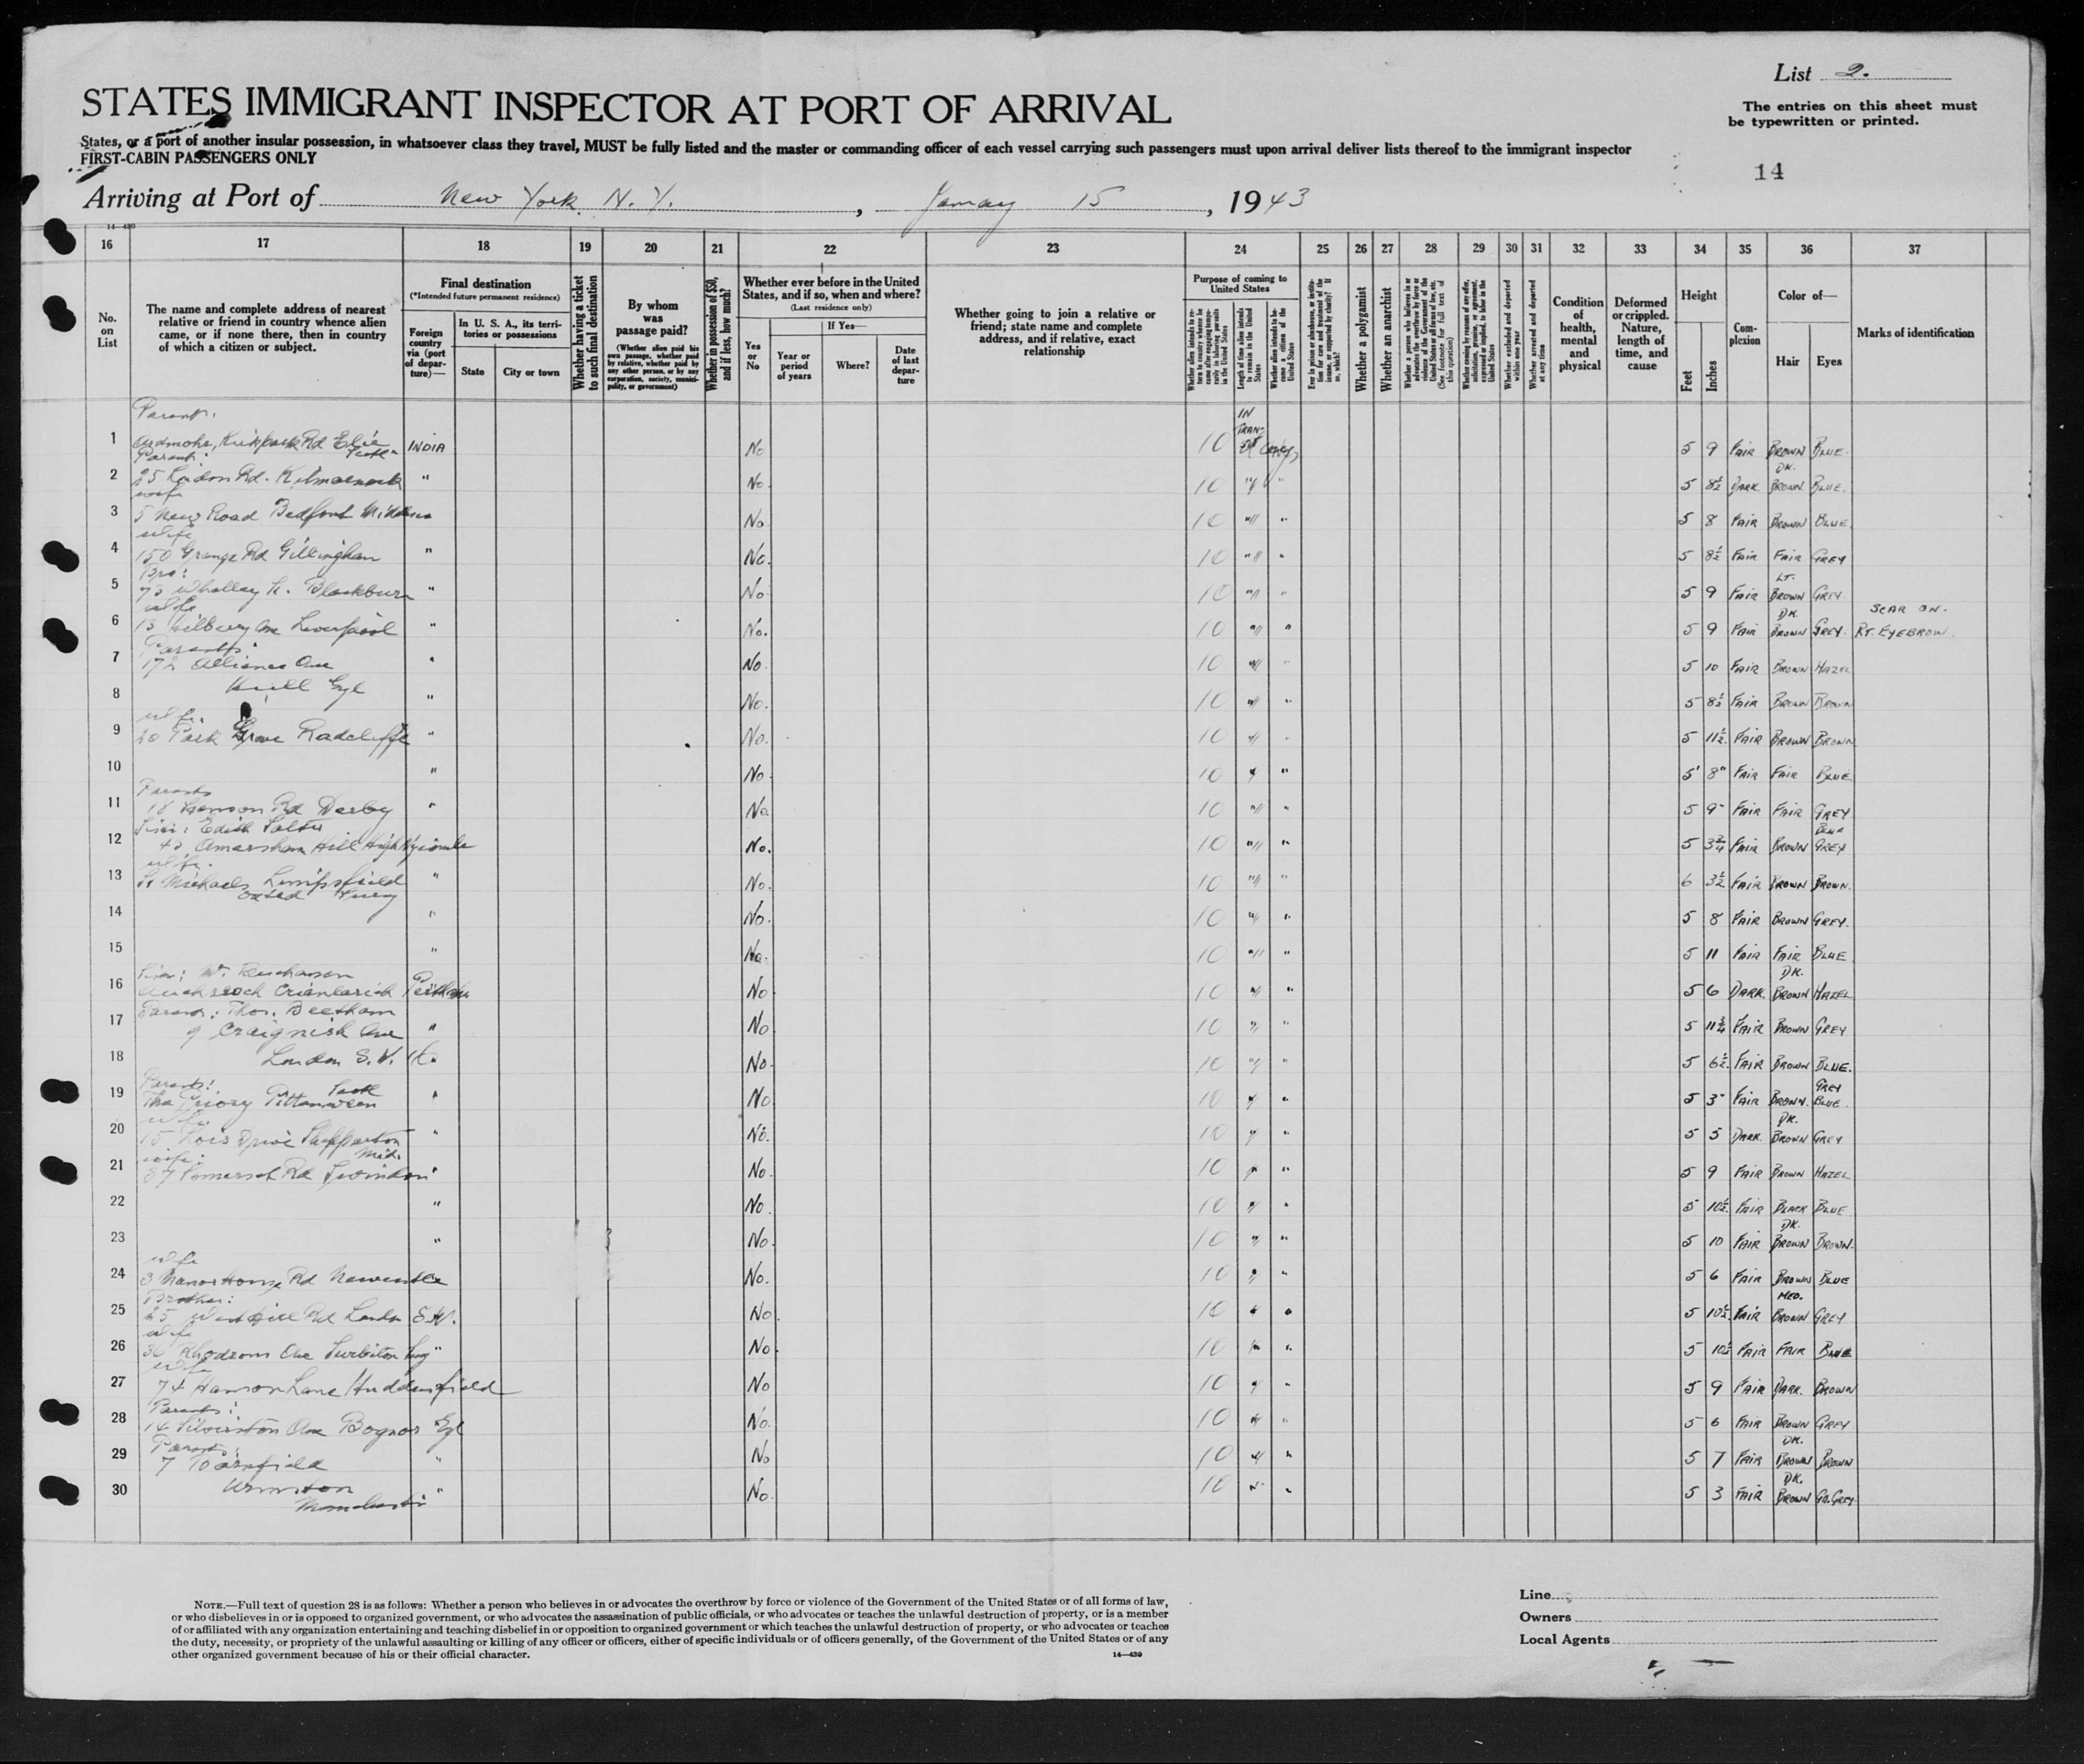 List 2.
STATES IMMIGRANT INSPECTOR AT PORT OF ARRIVAL
The entries on this sheet must
be typewritten or printed.
States, or a port of another insular possession, in whatsoever class they travel, MUST be fully listed and the master or commanding officer of each vessel carrying such passengers must upon arrival deliver lists thereof to the immigrant inspector
FIRST-CABIN PASSENGERS ONLY
14
Arriving at Port of New York N. Y. , January 15 , 1943
16 17 18 19 20 21 22 23 24 25 26 27 28 29 30 31 32 33 34 35 36 37
No. on List
The name and complete address of nearest
relative or friend in country whence alien
came, or if none there, then in country
of which a citizen or subject.
Final destination
(*Intended future permanent residence)
Foreign country via (port of departure)—
In U. S. A., its territories or possessions
State City or town
Whether having a ticket to such final destination
By whom was passage paid?
(Whether alien paid his own passage, whether paid by relative, whether paid by any other person, or by any corporation, society, municipality, or government)
Whether in possession of $50, and if less, how much?
Whether ever before in the United States, and if so, when and where?
(Last residence only)
Yes or No
If Yes—
Year or period of years Where? Date of last departure
Whether going to join a relative or
friend; state name and complete
address, and if relative, exact
relationship
Purpose of coming to United States
Length of time alien intends to remain in the United States
Whether alien intends to become a citizen of the United States
Whether a polygamist
Whether an anarchist
Whether excluded and deported within one year
Whether arrested and deported at any time
Condition of health, mental and physical
Deformed or crippled. Nature, length of time, and cause
Height
Feet Inches
Complexion
Color of—
Hair Eyes
Marks of identification
Parents:
1 Kirkpark Rd Elie INDIA No 10 IN TRAN- 5 9 FAIR BROWN BLUE
Parents:
2 25 London Rd. Kilmarnock " No. 10 " " 5 8½ DARK DK. BROWN BLUE.
wife
3 5 New Road Bedfont Middlesex No. 10 " " 5 8 FAIR BROWN BLUE
wife
4 150 Grange Rd Gillingham " No. 10 " " 5 8½ FAIR FAIR GREY
Bro:
5 Whalley Blackburn " No 10 " " 5 9 FAIR LT. BROWN GREY
wife
6 13 Hilberry Ave Liverpool " No. 10 " " 5 9 FAIR DK. BROWN GREY. SCAR ON. RT. EYEBROW.
Parents:
7 172 Alliance Ave " No. 10 " " 5 10 FAIR BROWN HAZEL
8 Hull Egl " No. 10 " " 5 8½ FAIR BROWN BROWN
wife
9 20 Park Grove Radcliffe " No. 10 " " 5 11½ FAIR BROWN BROWN
10 " No. 10 " " 5' 8" FAIR FAIR BLUE
Parents
11 Rd Derby " No. 10 " " 5 9" FAIR FAIR GREY
Sis: Edith
12 Amersham Hill High Wycombe No. 10 " " 5 3¾ FAIR BROWN BLUE GREY
wife.
13 St Michaels Limpsfield " No. 10 " " 6 3½ FAIR BROWN BROWN.
Oxted Surrey
14 " No. 10 " " 5 8 FAIR BROWN GREY.
15 " No. 10 " " 5 11 FAIR FAIR BLUE
16 Crianlarich Perthshire No 10 " " 5 6 DARK. DK. BROWN HAZEL
Parents: Thos. Beetham
17 9 Craignish Ave " No 10 " " 5 11¾ FAIR BROWN GREY
18 London S.W. 16. No. 10 " " 5 6½ FAIR BROWN BLUE.
Parents: Scotl
19 The Priory Pittenweem " No. 10 " " 5 3" FAIR BROWN. GREY BLUE
wife.
20 15 Lois Drive Shepperton Mid. " No. 10 " " 5 5 DARK. DK. BROWN GREY
wife:
21 37 Somerset Rd Swindon " No. 10 " " 5 9 FAIR BROWN HAZEL
22 " No. 10 " " 5 10½ FAIR BLACK BLUE
23 " No. 10 " " 5 10 FAIR DK. BROWN BROWN.
wife
24 3 Manor House Rd Newcastle No. 10 " " 5 6 FAIR BROWN BLUE
Brother:
25 25 West Hill Rd London S.W. No. 10 " " 5 10½ FAIR MED. BROWN GREY
wife
26 Ave Surbiton Surry " No. 10 " " 5 10½ FAIR FAIR BLUE
wife
27 74 Hanson Lane Huddersfield No 10 " " 5 9 FAIR DARK. BROWN
Parents:
28 14 Ave Bognor Egl No. 10 " " 5 6 FAIR BROWN GREY
Parents:
29 7 " No 10 " " 5 7 FAIR DK. BROWN BROWN
30 Urmston " No. 10 " " 5 3 FAIR DK. BROWN GR. GREY
Manchester
NOTE.—Full text of question 28 is as follows: Whether a person who believes in or advocates the overthrow by force or violence of the Government of the United States or of all forms of law,
or who disbelieves in or is opposed to organized government, or who advocates the assassination of public officials, or who advocates or teaches the unlawful destruction of property, or is a member
of or affiliated with any organization entertaining and teaching disbelief in or opposition to organized government or which teaches the unlawful destruction of property, or who advocates or teaches
the duty, necessity, or propriety of the unlawful assaulting or killing of any officer or officers, either of specific individuals or of officers generally, of the Government of the United States or of any
other organized government because of his or their official character.
14—430
Line
Owners
Local Agents